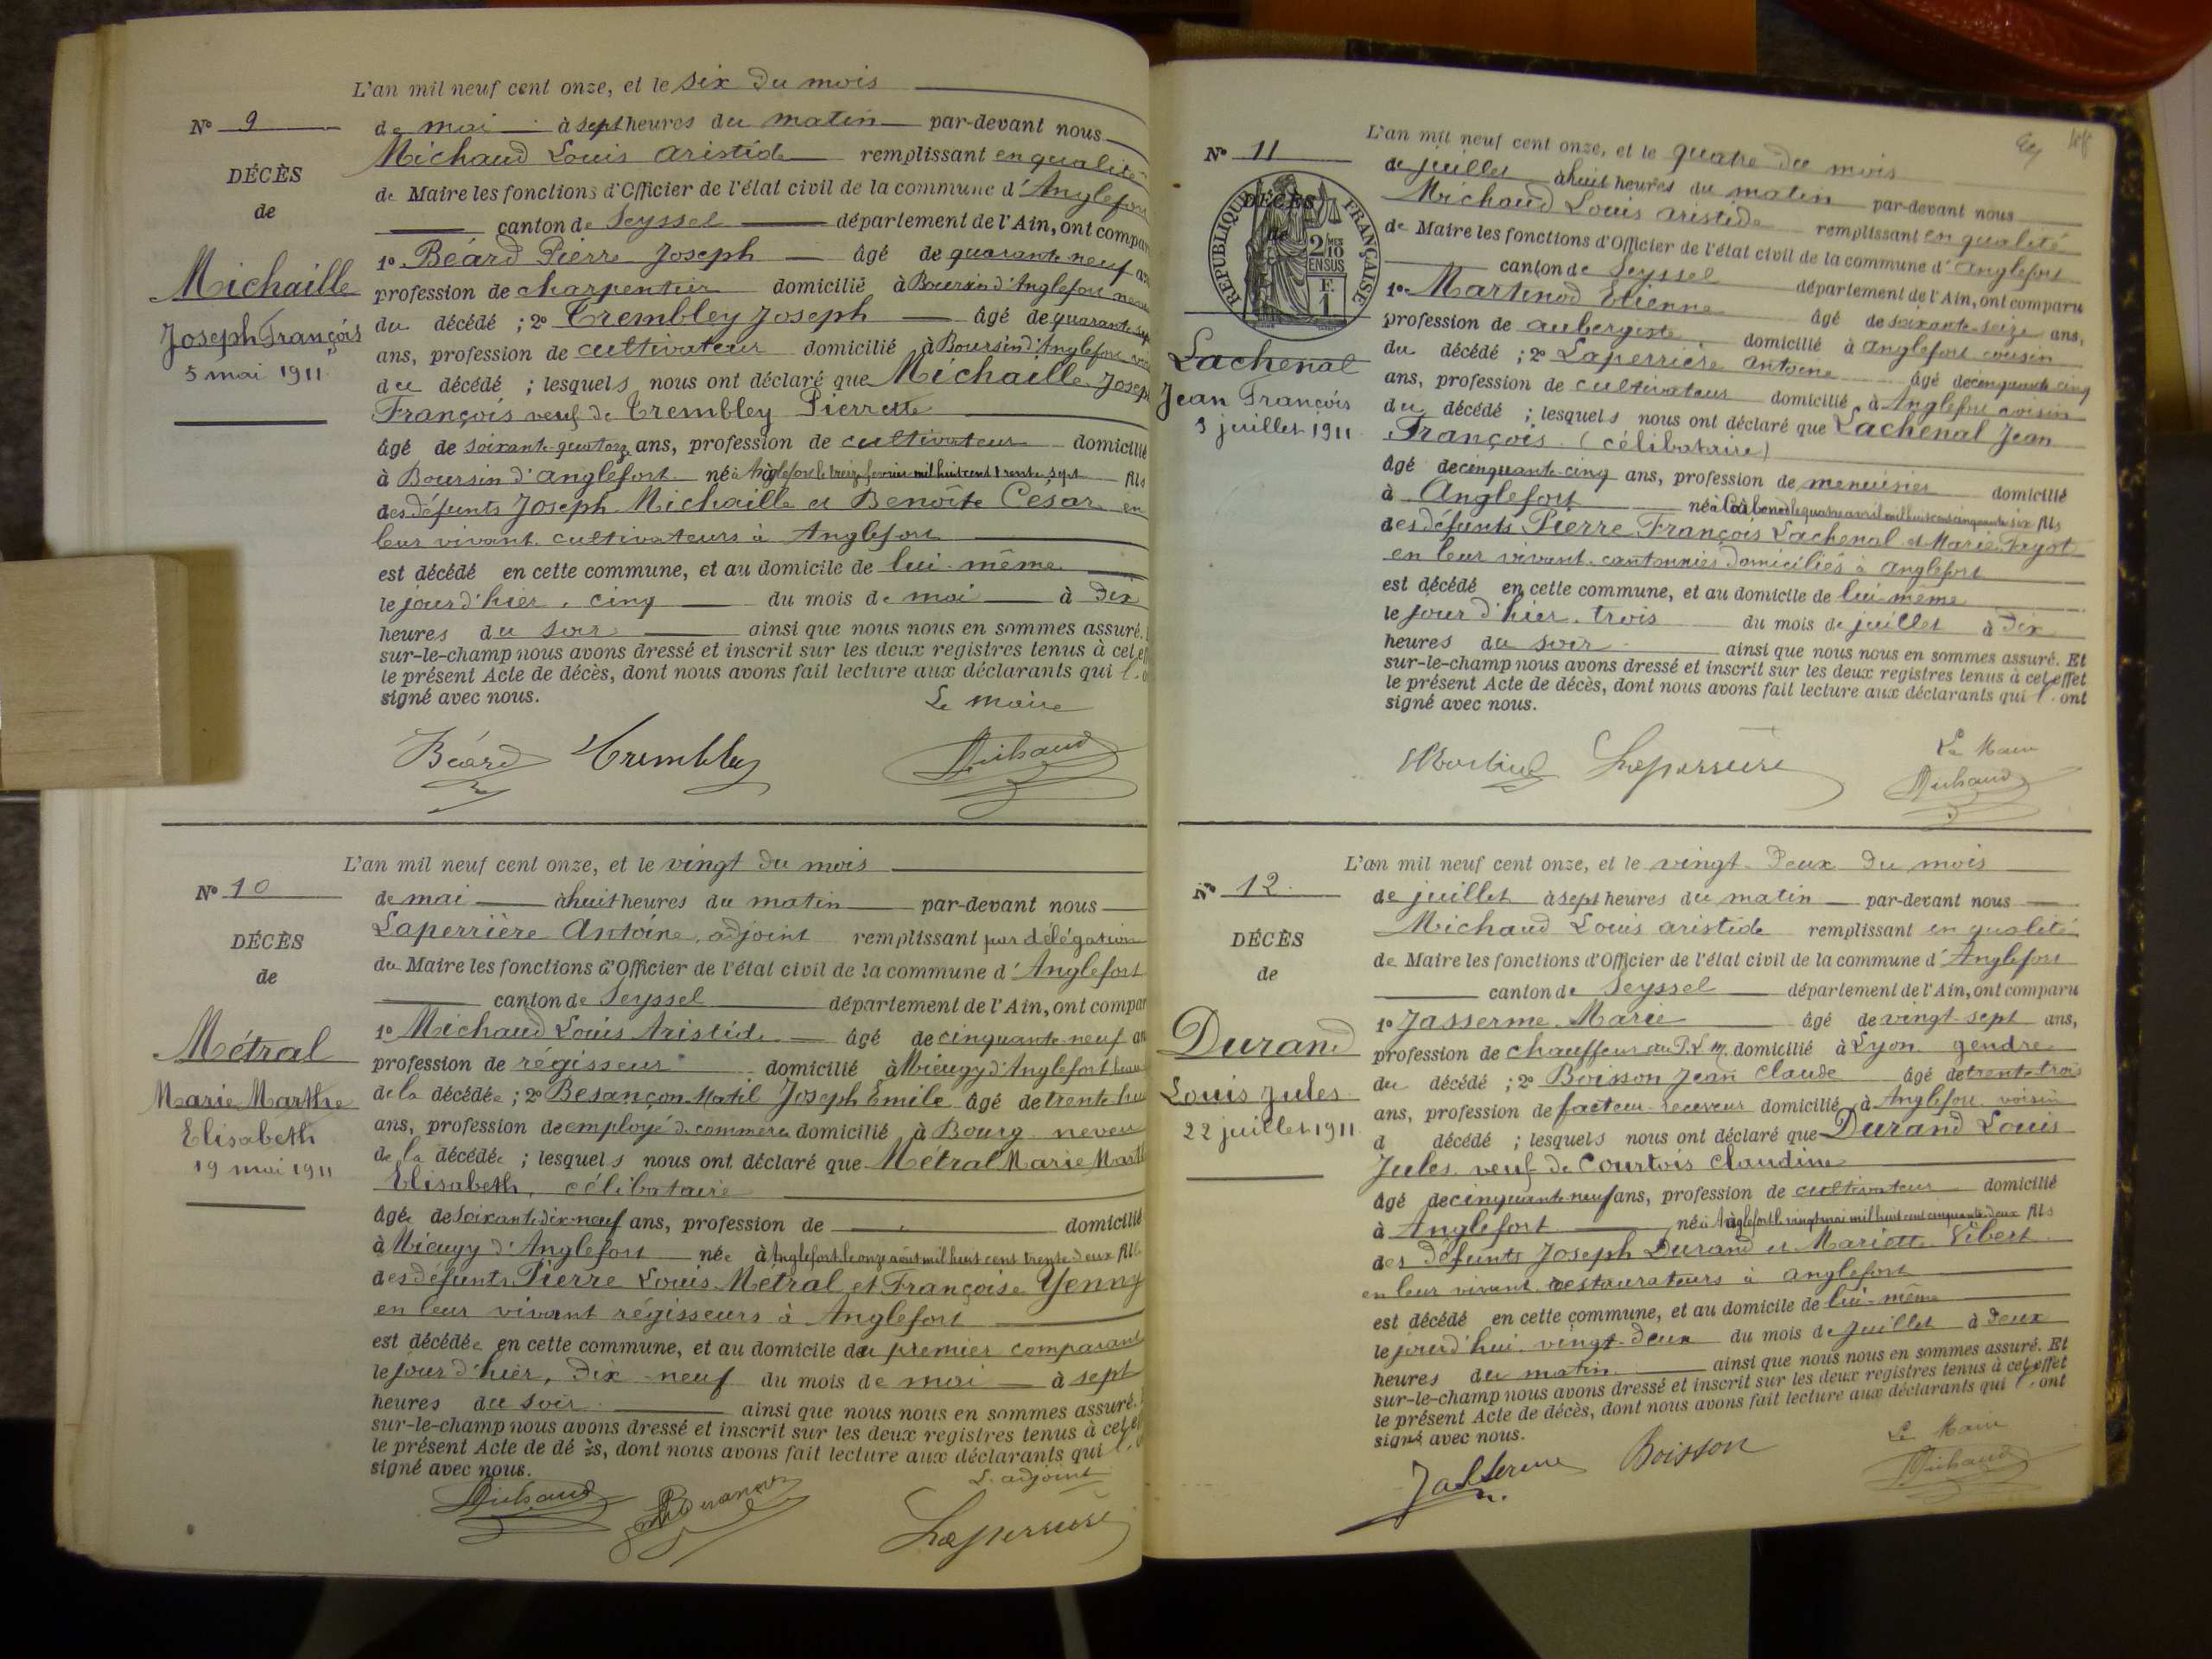 L'an mil neuf cent onze, et le six du mois
N° 9
de mai à sept heures du matin par-devant nous
Michaud Louis Aristide remplissant en qualité
DÉCÈS
de
de Maire les fonctions d'Officier de l'état civil de la commune d'Anglefort
canton de Seyssel département de l'Ain, ont compar
1° Béard Pierre Joseph âgé de quarante neuf ans
Michaille
Joseph François
5 mai 1911
profession de charpentier domicilié à Boursin d'Anglefort neveu
du décédé ; 2° Trembley Joseph âgé de quarante sept
ans, profession de cultivateur domicilié à Boursin d'Anglefort voisin
du décédé ; lesquels nous ont déclaré que Michaille Joseph
François veuf de Trembley Pierrette
âgé de soixante-quatorze ans, profession de cultivateur domicilié
à Boursin d'Anglefort né à Anglefort le treize fevrier mil huit cent trente-sept fils
des défunts Joseph Michaille et Benoîte César en
leur vivant cultivateurs à Anglefort
est décédé en cette commune, et au domicile de lui-même
le jour d'hier, cinq du mois de mai à dix
heures du soir ainsi que nous nous en sommes assuré.
sur-le-champ nous avons dressé et inscrit sur les deux registres tenus à cet eff
le présent Acte de décès, dont nous avons fait lecture aux déclarants qui l'
signé avec nous.
Le Maire
Béard Trembley Michaud
L'an mil neuf cent onze, et le vingt du mois
N° 10
de mai à huit heures du matin par-devant nous
Laperrière Antoine, adjoint remplissant par délégation
DÉCÈS
de
du Maire les fonctions d'Officier de l'état civil de la commune d'Anglefort
canton de Seyssel département de l'Ain, ont compar
1° Michaud Louis Aristide âgé de cinquante neuf an
Métral
Marie Marthe
Elisabeth
19 mai 1911
profession de régisseur domicilié à Mieugy d'Anglefort
de la décédée ; 2° Besançon-Matil Joseph Emile âgé de trente huit
ans, profession de employé de commerce domicilié à Bourg neveu
de la décédée ; lesquels nous ont déclaré que Métral Marie Marthe
Elisabeth, célibataire
âgée de soixante-dix-neuf ans, profession de domicilié
à Mieugy d'Anglefort née à Anglefort le onze août mil huit cent trente-deux fille
des défunts Pierre Louis Métral et Françoise Yenny
en leur vivant régisseurs à Anglefort
est décédée en cette commune, et au domicile du premier comparant
le jour d'hier, dix-neuf du mois de mai à sept
heures du soir ainsi que nous nous en sommes assuré.
sur-le-champ nous avons dressé et inscrit sur les deux registres tenus à cet ef
le présent Acte de décès, dont nous avons fait lecture aux déclarants qui l'
signé avec nous.
L'adjoint
Michaud Besançon Laperrière
L'an mil neuf cent onze, et le quatre du mois
N° 11
de juillet à huit heures du matin par-devant nous
Michaud Louis Aristide remplissant en qualité
DÉCÈS
de
RÉPUBLIQUE FRANÇAISE
2/10 EN SUS
F. 1
de Maire les fonctions d'Officier de l'état civil de la commune d'Anglefort
canton de Seyssel département de l'Ain, ont comparu
1° Martinod Etienne âgé de soixante-seize ans,
Lachenal
Jean François
3 juillet 1911
profession de aubergiste domicilié à Anglefort cousin
du décédé ; 2° Laperrière Antoine âgé de cinquante cinq
ans, profession de cultivateur domicilié à Anglefort voisin
du décédé ; lesquels nous ont déclaré que Lachenal Jean
François (célibataire)
âgé de cinquante-cinq ans, profession de menuisier domicilié
à Anglefort né à Corbonod le quatre avril mil huit cent cinquante six fils
des défunts Pierre François Lachenal et Marie Fayot
en leur vivant cantonniers domiciliés à Anglefort
est décédé en cette commune, et au domicile de lui-même
le jour d'hier, trois du mois de juillet à dix
heures du soir ainsi que nous nous en sommes assuré. Et
sur-le-champ nous avons dressé et inscrit sur les deux registres tenus à cet effet
le présent Acte de décès, dont nous avons fait lecture aux déclarants qui l'ont
signé avec nous.
Le Maire
Martinod Laperrière Michaud
L'an mil neuf cent onze, et le vingt-deux du mois
N° 12
de juillet à sept heures du matin par-devant nous
Michaud Louis Aristide remplissant en qualité
DÉCÈS
de
de Maire les fonctions d'Officier de l'état civil de la commune d'Anglefort
canton de Seyssel département de l'Ain, ont comparu
1° Jasserme Marie âgé de vingt-sept ans,
Durand
Louis Jules
22 juillet 1911
profession de chauffeur au P.L.M. domicilié à Lyon gendre
du décédé ; 2° Boisson Jean Claude âgé de trente-trois
ans, profession de facteur-receveur domicilié à Anglefort voisin
d décédé ; lesquels nous ont déclaré que Durand Louis
Jules veuf de Courtois Claudine
âgé de cinquante-neuf ans, profession de cultivateur domicilié
à Anglefort né à Anglefort le vingt mai mil huit cent cinquante-deux fils
des défunts Joseph Durand et Mariette Vibert
en leur vivant restaurateurs à Anglefort
est décédé en cette commune, et au domicile de lui-même
le jourd'hui vingt-deux du mois de juillet à deux
heures du matin ainsi que nous nous en sommes assuré. Et
sur-le-champ nous avons dressé et inscrit sur les deux registres tenus à cet effet
le présent Acte de décès, dont nous avons fait lecture aux déclarants qui l'ont
signé avec nous.
Le Maire
Jasserme Boisson Michaud